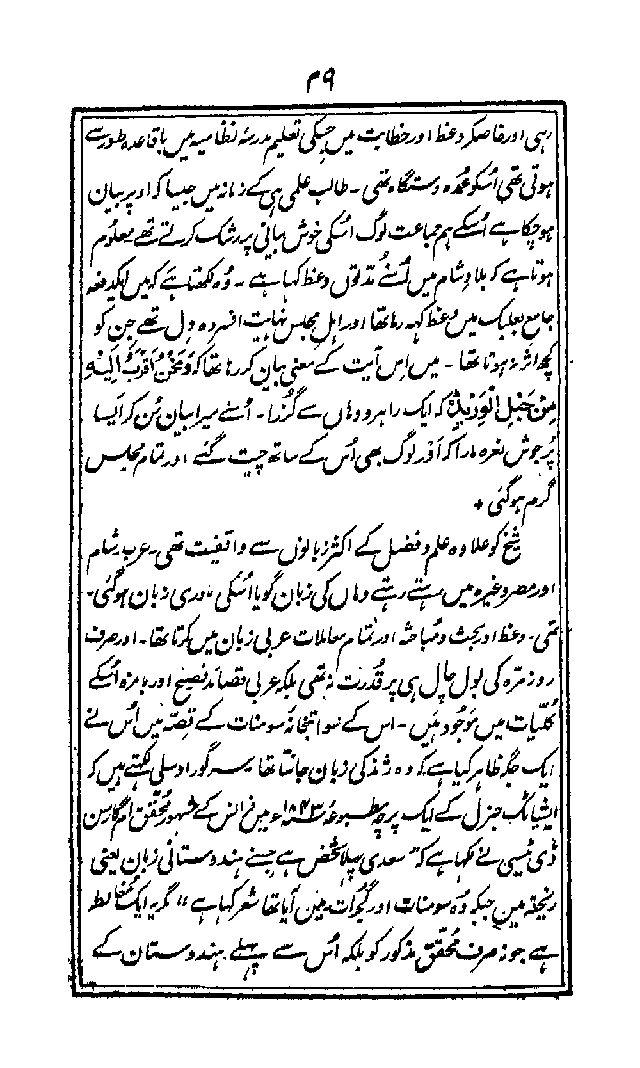 ۳۹
رہی اور خاصکر وعظ اور خطابت میں جسکی تعلیم مدرسۂ نظامیہ میں باقاعدہ طور سے
ہوتی تھی اُسکو عمدہ دستگاہ تھی ۔ طالب علمی ہی کے زمانہ میں جیسا کہ اوپر بیان
ہوچکا ہے اُسکے ہم جماعت لوگ اسکی خوش بیانی پر رشک کرتے تھے معلوم
ہوتا ہے کہ بلاد شام میں اُسنے مُدتوں وعظ کہا ہے ۔ وُہ لکھتا ہے کہ میں ایکدفعہ
جامع بعلبک میں وعظ کہہ رہا تھا اور اہل مجلس نہایت افسردہ دل تھے جن کو
کچھ اثر نہ ہوتا تھا ۔ میں اِس آیت کے معنی بیان کر رہا تھا کہ وَنَحْنُ اَقْرَبُ اِلَیْہِ
مِنْ حَبْلِ الْوَرِیْدِ کہ ایک راہرو وہاں سے گُذرا ۔ اُسنے میرا بیان سُن کر ایسا
پُرجوش نعرہ مارا کہ اَور لوگ بھی اُس کے ساتھ چیت گئے اور تمام مجلس
گرم ہوگئی +
شیخ کو علاوہ علم و فضل کے اکثر زبانوں سے واقفیت تھی ۔ عرب شام
اور مصر وغیرہ میں رہتے رہتے وہاں کی زبان گویا اُسکی مادری زبان ہوگئی
تھی ۔ وعظ اور بحث و مُباحثہ اور تمام معاملات عربی زبان میں کرتا تھا ۔ اور صرف
روزمرّہ کی بول چال ہی پر قُدرت نہ تھی بلکہ عربی قصائد فصیح اور بامزہ اُسکے
کُلّیات میں موجود ہیں ۔ اس کے سوا بتخانۂ سومنات کے قِصّہ میں اُس نے
ایک جگہ ظاہر کیا ہے کہ وہ ژند کی زبان جانتا تھا ۔ سر گور اوسلی لکھتے ہیں کہ
ایشیاٹک جرنل کے ایک پرچہ مطبوعہ ۱۸۴۳ء میں فرانس کے مشہور مُحقق ام گارسن
ڈی ٹیسی نے لکھا ہے کہ "سعدی پہلا شخص ہے جسنے ہندوستانی زبان یعنی
ریختہ میں جبکہ وُہ سومنات اور گجرات میں آیا تھا شعر کہا ہے" مگر یہ ایک مُغالطہ
ہے جو نہ صرف مُحقق مذکور کو بلکہ اُس سے پہلے ہندوستان کے